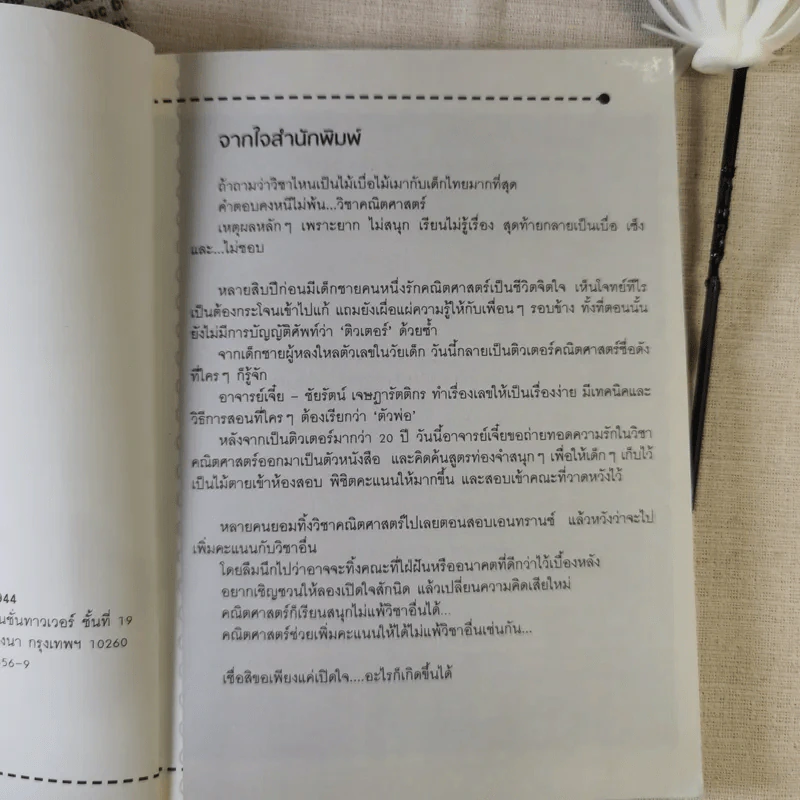 944
นชั่นทาวเวอร์ ชั้นที่ 19
งนา กรุงเทพฯ 10260
56-9
จากใจสำนักพิมพ์
ถ้าถามว่าวิชาไหนเป็นไม้เบื่อไม้เมากับเด็กไทยมากที่สุด
คำตอบคงหนีไม่พ้น...วิชาคณิตศาสตร์
เหตุผลหลักๆ เพราะยาก ไม่สนุก เรียนไม่รู้เรื่อง สุดท้ายกลายเป็นเบื่อ เซ็ง
และ...ไม่ชอบ
หลายสิบปีก่อนมีเด็กชายคนหนึ่งรักคณิตศาสตร์เป็นชีวิตจิตใจ เห็นโจทย์ทีไร
เป็นต้องกระโจนเข้าไปแก้ แถมยังเผื่อแผ่ความรู้ให้กับเพื่อนๆ รอบข้าง ทั้งที่ตอนนั้น
ยังไม่มีการบัญญัติศัพท์ว่า 'ติวเตอร์' ด้วยซ้ำ
จากเด็กชายผู้หลงใหลตัวเลขในวัยเด็ก วันนี้กลายเป็นติวเตอร์คณิตศาสตร์ชื่อดัง
ที่ใครๆ ก็รู้จัก
อาจารย์เจี๋ย – ชัยรัตน์ เจษฎารัตติกร ทำเรื่องเลขให้เป็นเรื่องง่าย มีเทคนิคและ
วิธีการสอนที่ใครๆ ต้องเรียกว่า 'ตัวพ่อ'
หลังจากเป็นติวเตอร์มากว่า 20 ปี วันนี้อาจารย์เจี๋ยขอถ่ายทอดความรักในวิชา
คณิตศาสตร์ออกมาเป็นตัวหนังสือ และคิดค้นสูตรท่องจำสนุกๆ เพื่อให้เด็กๆ เก็บไว้
เป็นไม้ตายเข้าห้องสอบ พิชิตคะแนนให้มากขึ้น และสอบเข้าคณะที่วาดหวังไว้
หลายคนยอมทิ้งวิชาคณิตศาสตร์ไปเลยตอนสอบเอนทรานซ์ แล้วหวังว่าจะไป
เพิ่มคะแนนกับวิชาอื่น
โดยลืมนึกไปว่าอาจจะทิ้งคณะที่ใฝ่ฝันหรืออนาคตที่ดีกว่าไว้เบื้องหลัง
อยากเชิญชวนให้ลองเปิดใจสักนิด แล้วเปลี่ยนความคิดเสียใหม่
คณิตศาสตร์ก็เรียนสนุกไม่แพ้วิชาอื่นได้...
คณิตศาสตร์ช่วยเพิ่มคะแนนให้ได้ไม่แพ้วิชาอื่นเช่นกัน...
เชื่อสิขอเพียงแค่เปิดใจ....อะไรก็เกิดขึ้นได้